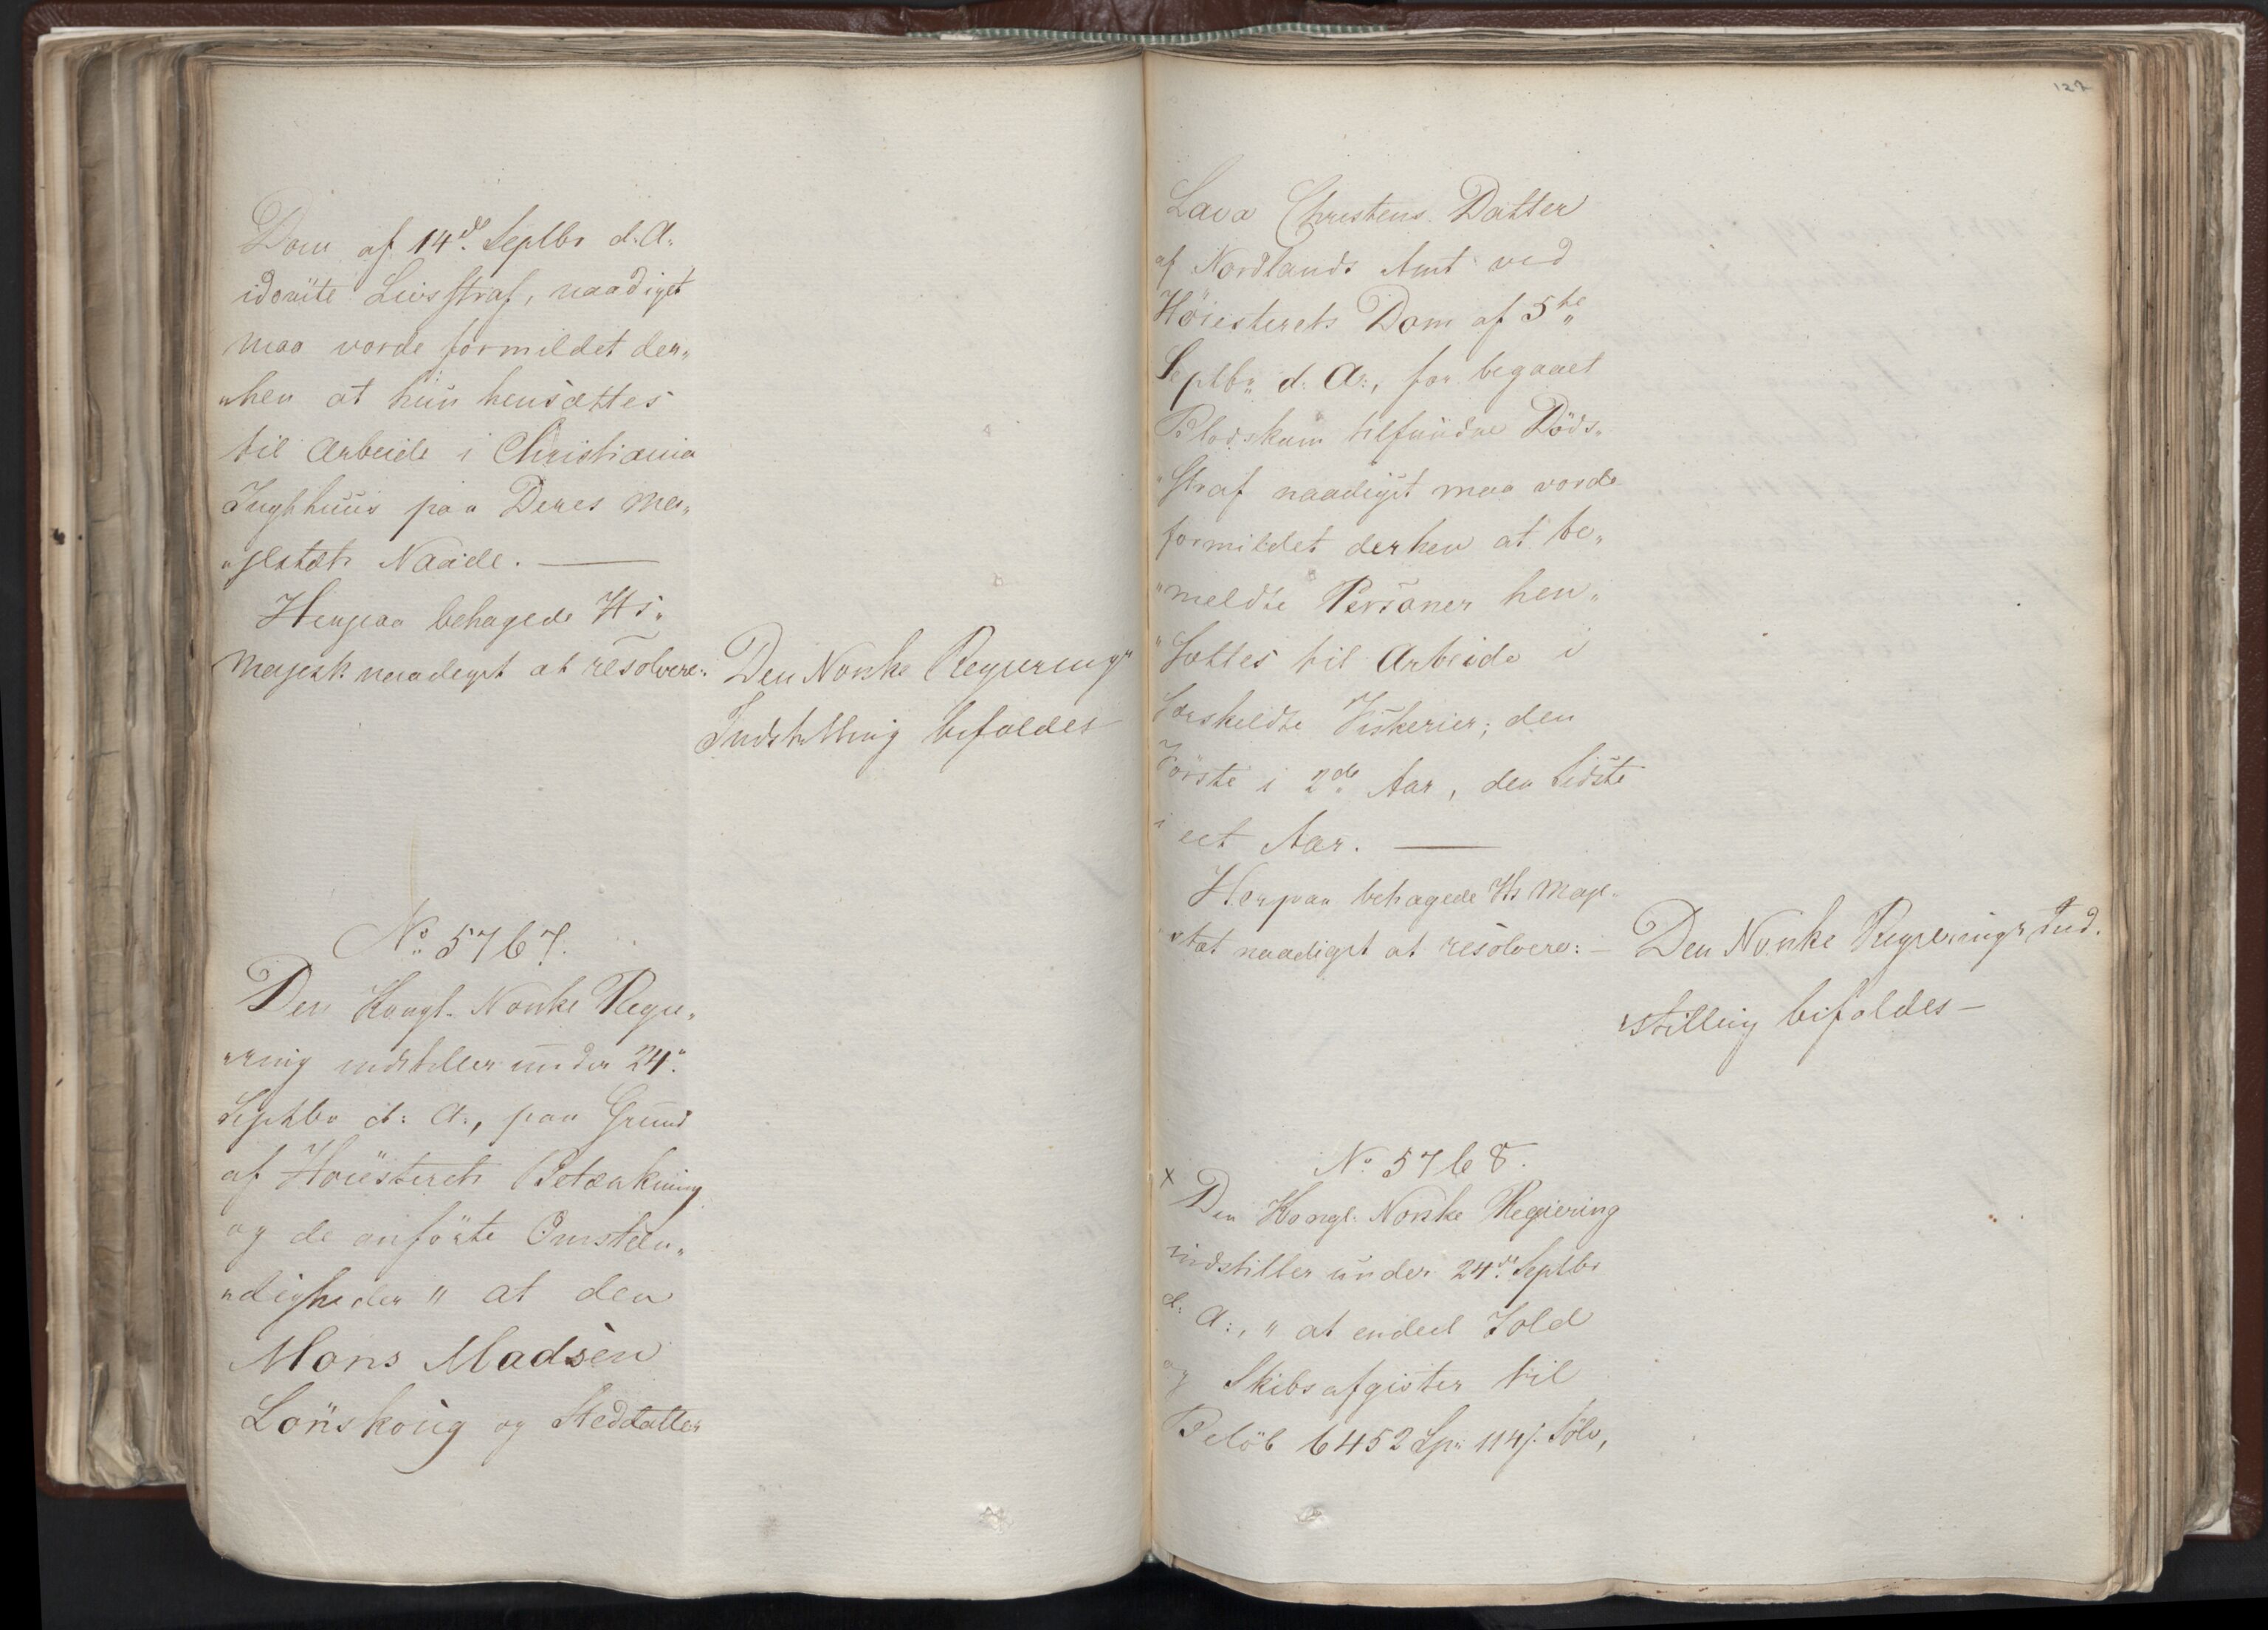 Dom af 14de Septbr d. A.
idömte Livsstraf, naadigst
maa vorde formildet der„
„hen at hun hensættes
til Arbeide i Christiania
Tugthuus paa Deres Ma„
„jestæts Naade. —
Herpaa behagede Hs„
Majestt naadigst at resolvere:
Den Norske Regjerings
Indstilling bifaldes
No 5767.
Den Kongl. Norske Regje„
„ring indstiller under 24„
Septbr d: A:, paa Grund
af Höiesterets Betænkning
og de anförte Omstæn„
„digheder „ at den
Mons Madsen
Lönskoug og Steddatter
127
Lava Christens Datter
af Nordlands Amt ved
Höiesterets Dom af 5te„
Septbr„ d: A:, for begaaet
Blodskam tilfundne Döds„
„Straf naadigst maa vorde
formildet derhen at be„
„meldte Personer hen„
„Sættes til Arbeide i
Særskildte Fiskerier; den
Förste i 2de Aar, den Sidste
i eet Aar. —
Herpaa behagede Hs Maje„
„stæt naadigst at resolvere: —
Den Norske Regjerings Ind.
„stilling bifaldes —
No 5768.
x Den Kongl. Norske Regiering
indstiller under 24de Septbr
d: A:, „ at endeel Told
og Skibsafgivter til
Belöb 6452 Sp: 114 s. Sölv,